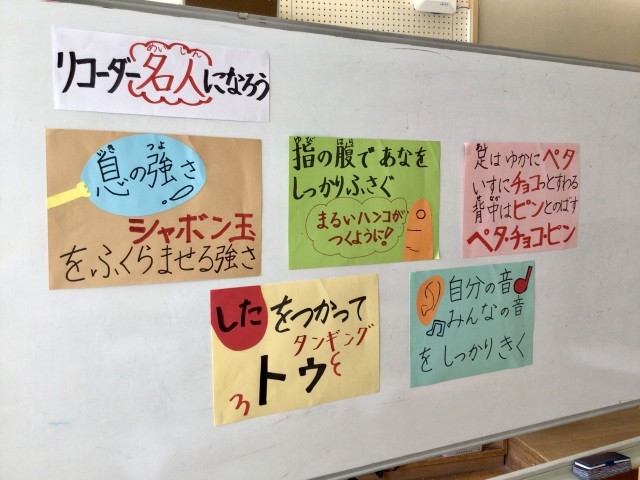 リコーダー名人になろう
めいじん
息の強さ
いき つよ
シャボン玉
をふくらませる強さ
指の腹であなを
ゆび はら
しっかりふさぐ
まるいハンコが
つくように!
足はゆかにペタ
いすにチョコっとすわる
背中はピンとのばす
ペタ・チョコ・ピン
したをつかって
タンギング
トゥ
自分の音
みんなの音
をしっかりきく